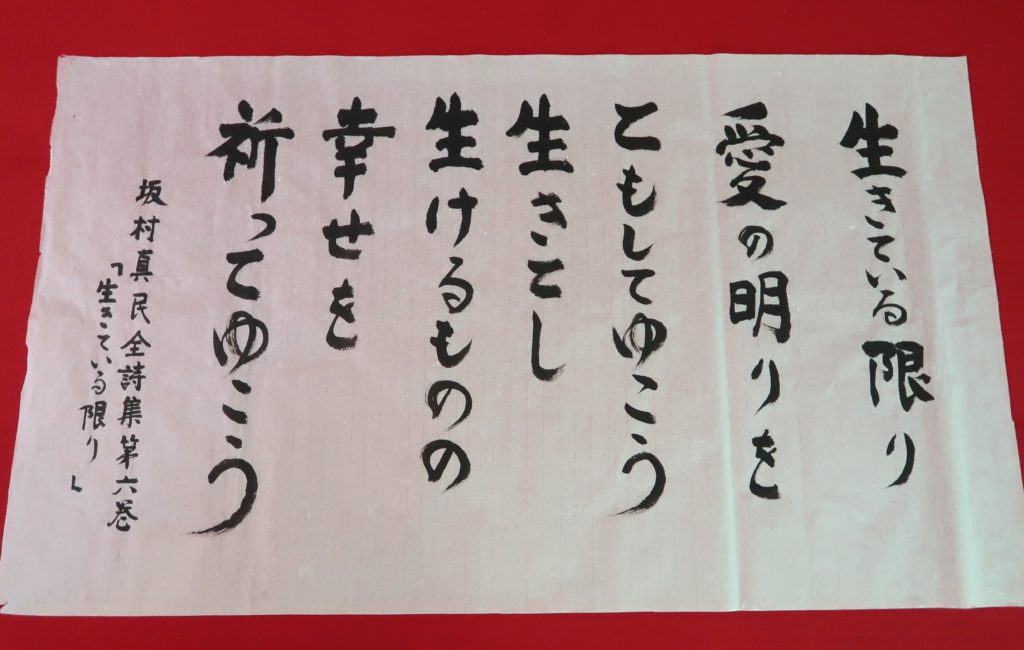 生きている限り
愛の明りを
ともしてゆこう
生きとし
生けるものの
幸せを
祈ってゆこう
坂村真民全詩集第六巻
「生きている限り」